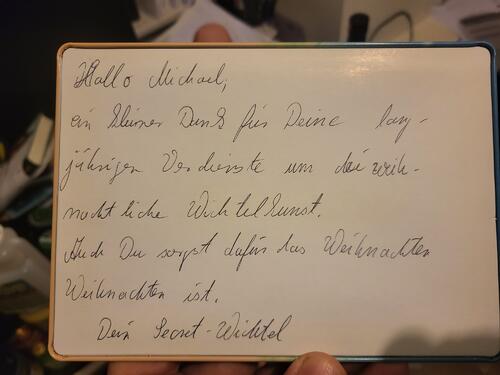 Hallo Michael,
ein kleiner Dank für Deine lang-
jährigen Verdienste um die weih-
nachtliche Wichtelkunst.
Auch Du sorgst dafür das Weihnachten
Weihnachten ist.
Dein Secret-Wichtel